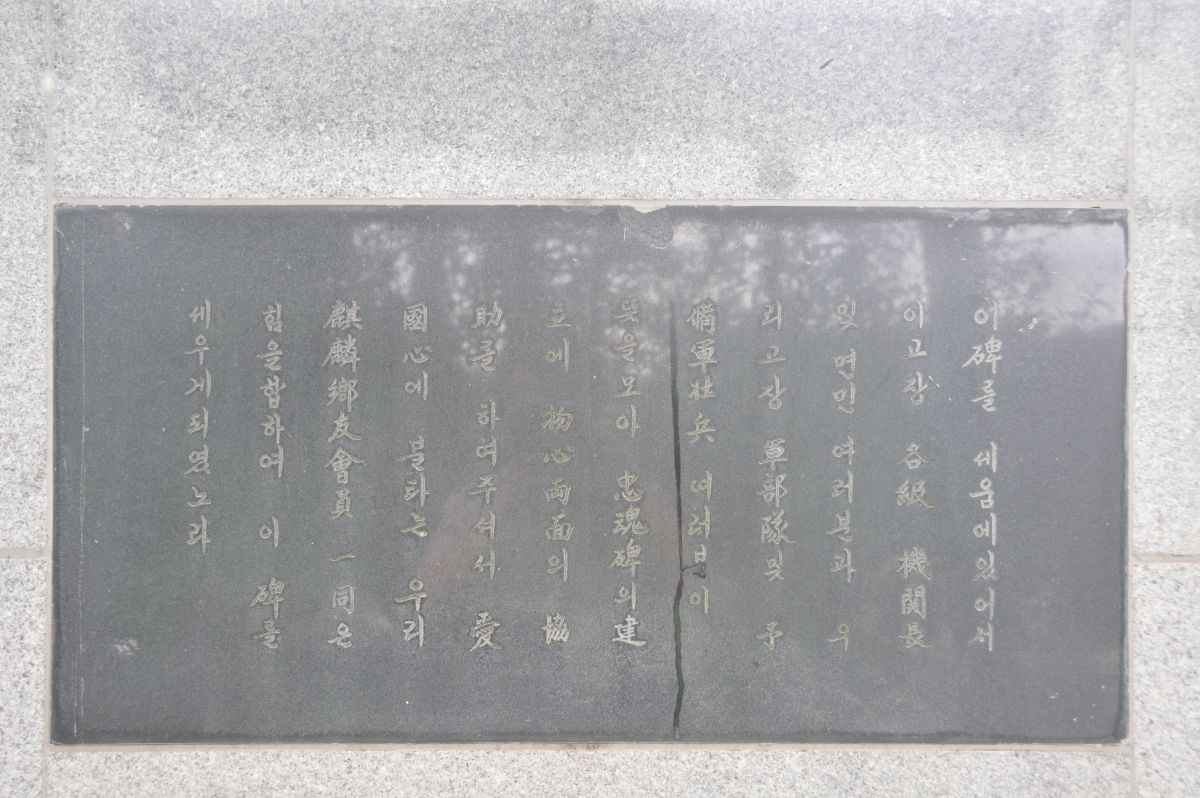 이碑를 세움에있어서
이고장 各級 機関長
및 면민 여러분과 우
리고장 軍部隊및 予
備軍壯兵 여러분이
뜻을모아 忠魂碑의建
立에 物心両面의 協
助를 하여주셔서 愛
國心에 불타는 우리
麒麟鄕友會員 一同은
힘을합하여 이 碑를
세우게되였노라